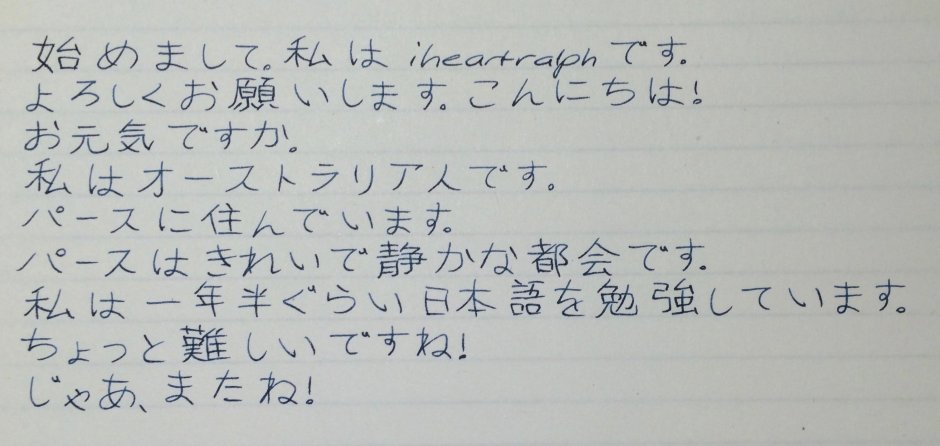 始めまして。私は iheartralphです。
よろしくお願いします。こんにちは!
お元気ですか。
私はオーストラリア人です。
パースに住んでいます。
パースはきれいで静かな都会です。
私は一年半ぐらい日本語を勉強しています。
ちょっと難しいですね!
じゃあ、またね!